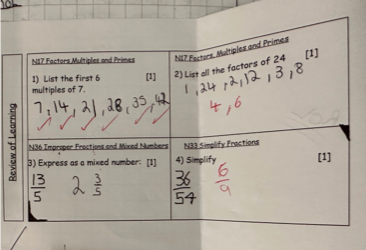 Review of Learning
N17 Factors, Multiples and Primes
1) List the first 6 [1]
multiples of 7.
7, 14, 21, 28, 35, 42
N17 Factors, Multiples and Primes
2) List all the factors of 24 [1]
1, 24, 2, 12, 3, 8
4, 6
N36 Improper Fractions and Mixed Numbers
3) Express as a mixed number: [1]
13/5 2 3/5
N33 Simplify Fractions
4) Simplify [1]
36/54 6/9